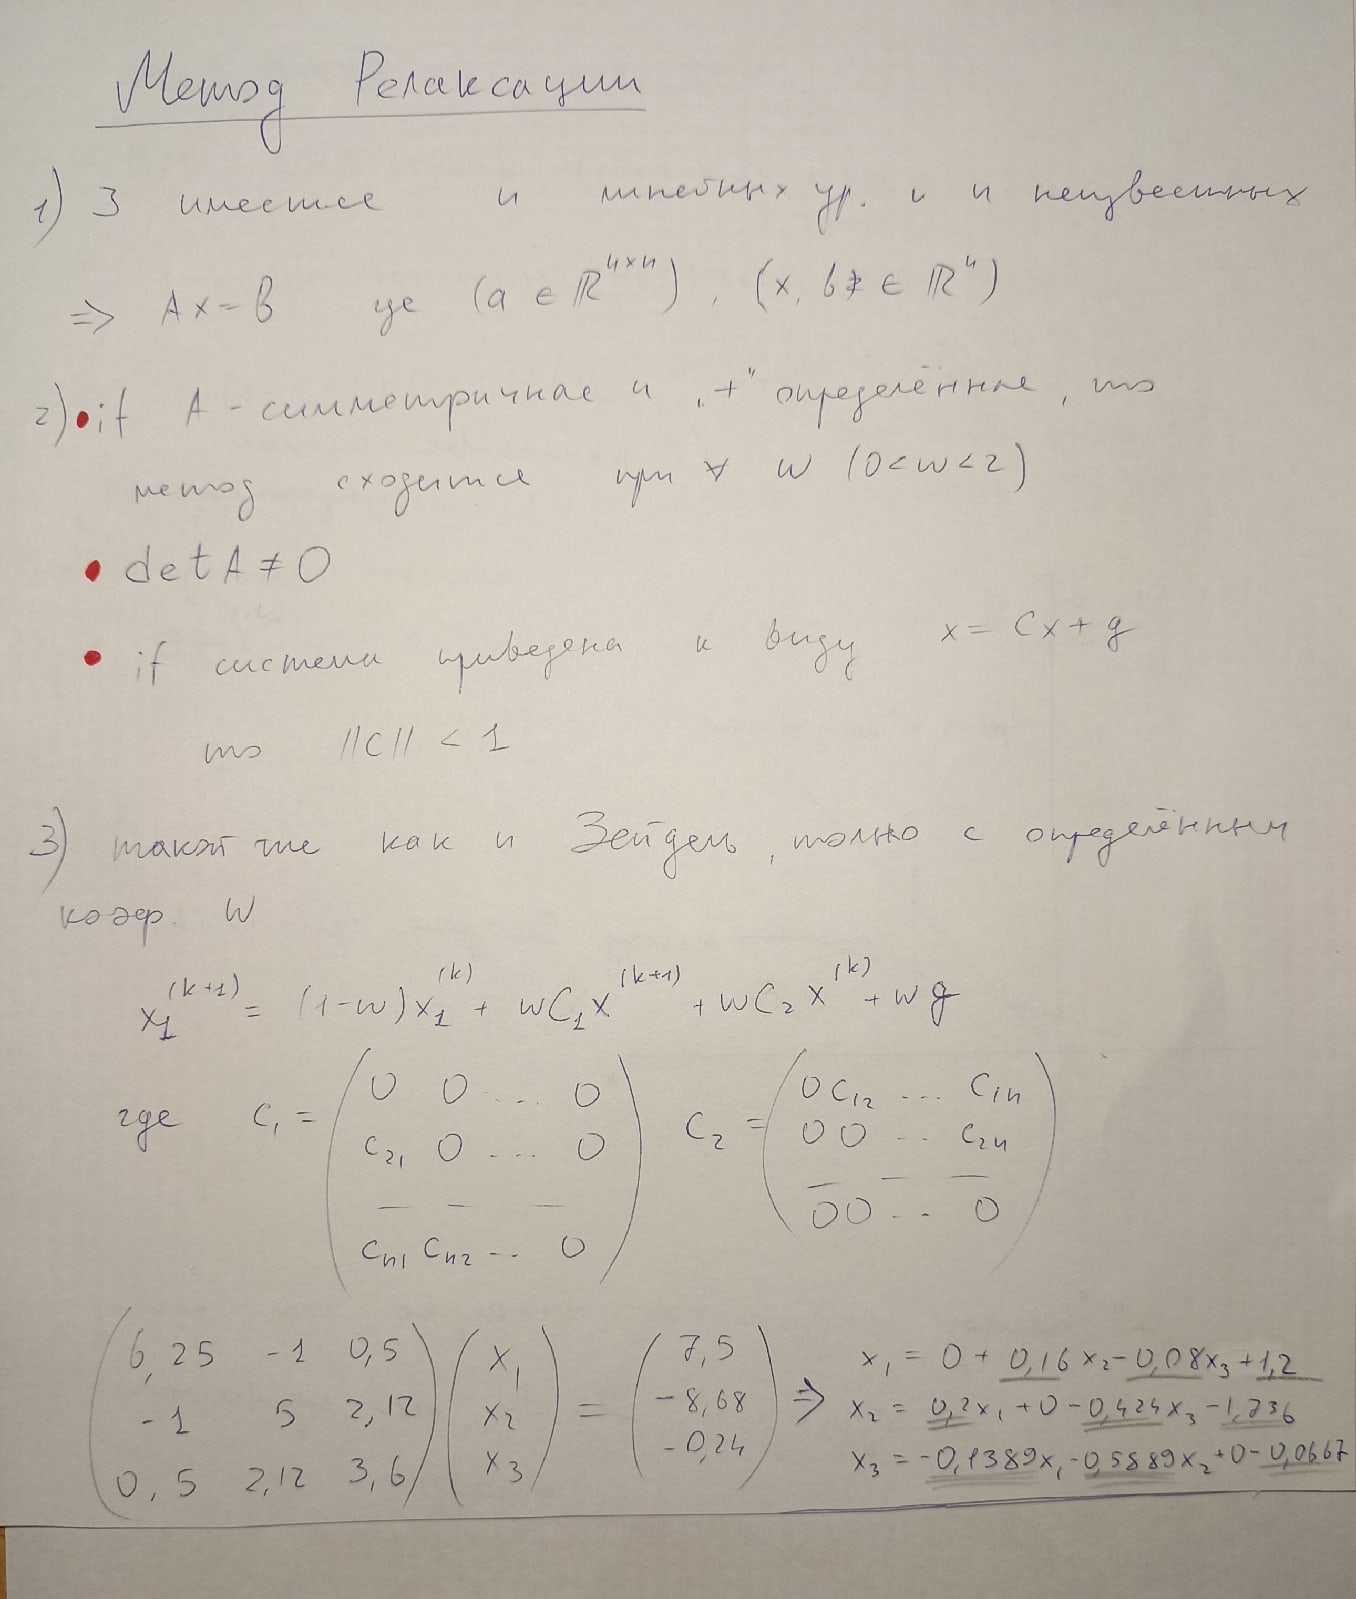 Метод Релаксации
1) З имеется n линейных ур. и n неизвестных
=> Ax = b где (a ∈ ℝⁿˣⁿ), (x, b ∈ ℝⁿ)
2) • if A - симметричная и „+" определённая, то
метод сходится при ∀ w (0<w<2)
• det A ≠ 0
• if система приведена к виду x = Cx + g
то ||C|| < 1
3) такой же как и Зейдель, только с определённым
коэф. w
x₁^(k+1) = (1-w)x₁^(k) + wC₁x^(k+1) + wC₂x^(k) + wg
где C₁ = (0 0 ... 0
c₂₁ 0 ... 0
— — —
cₙ₁ cₙ₂ ... 0) C₂ = (0 c₁₂ ... c₁ₙ
0 0 ... c₂ₙ
— — —
0 0 ... 0)
(6,25 -1 0,5
-1 5 2,12
0,5 2,12 3,6) (x₁
x₂
x₃) = (7,5
-8,68
-0,24) => x₁ = 0 + 0,16x₂ - 0,08x₃ + 1,2
x₂ = 0,2x₁ + 0 - 0,424x₃ - 1,736
x₃ = -0,1389x₁ - 0,5889x₂ + 0 - 0,0667